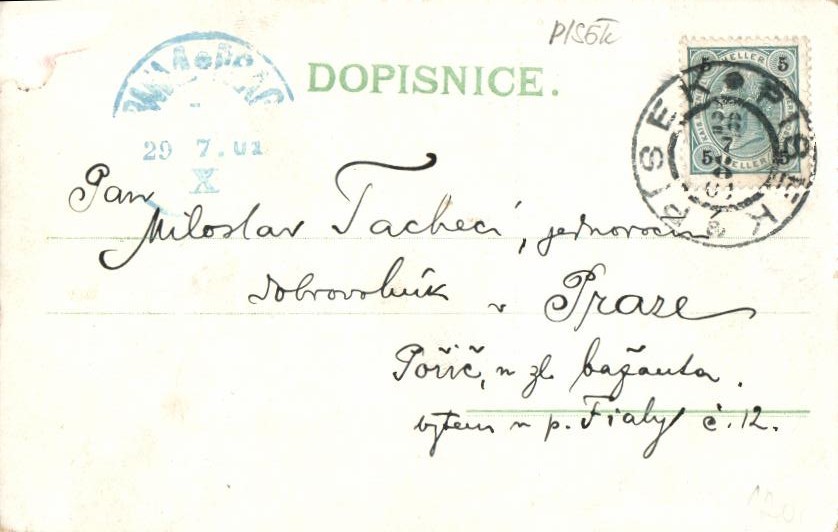 PISEK
DOPISNICE.
5 HELLER 5
5 HELLER 5
PISEK PISEK
29 7.01
X
Pan
Miloslav Tachecí, jednoroční
dobrovolník v Praze
Poříč, u zl. bažanta.
bytem u p. Fialy č. 12.